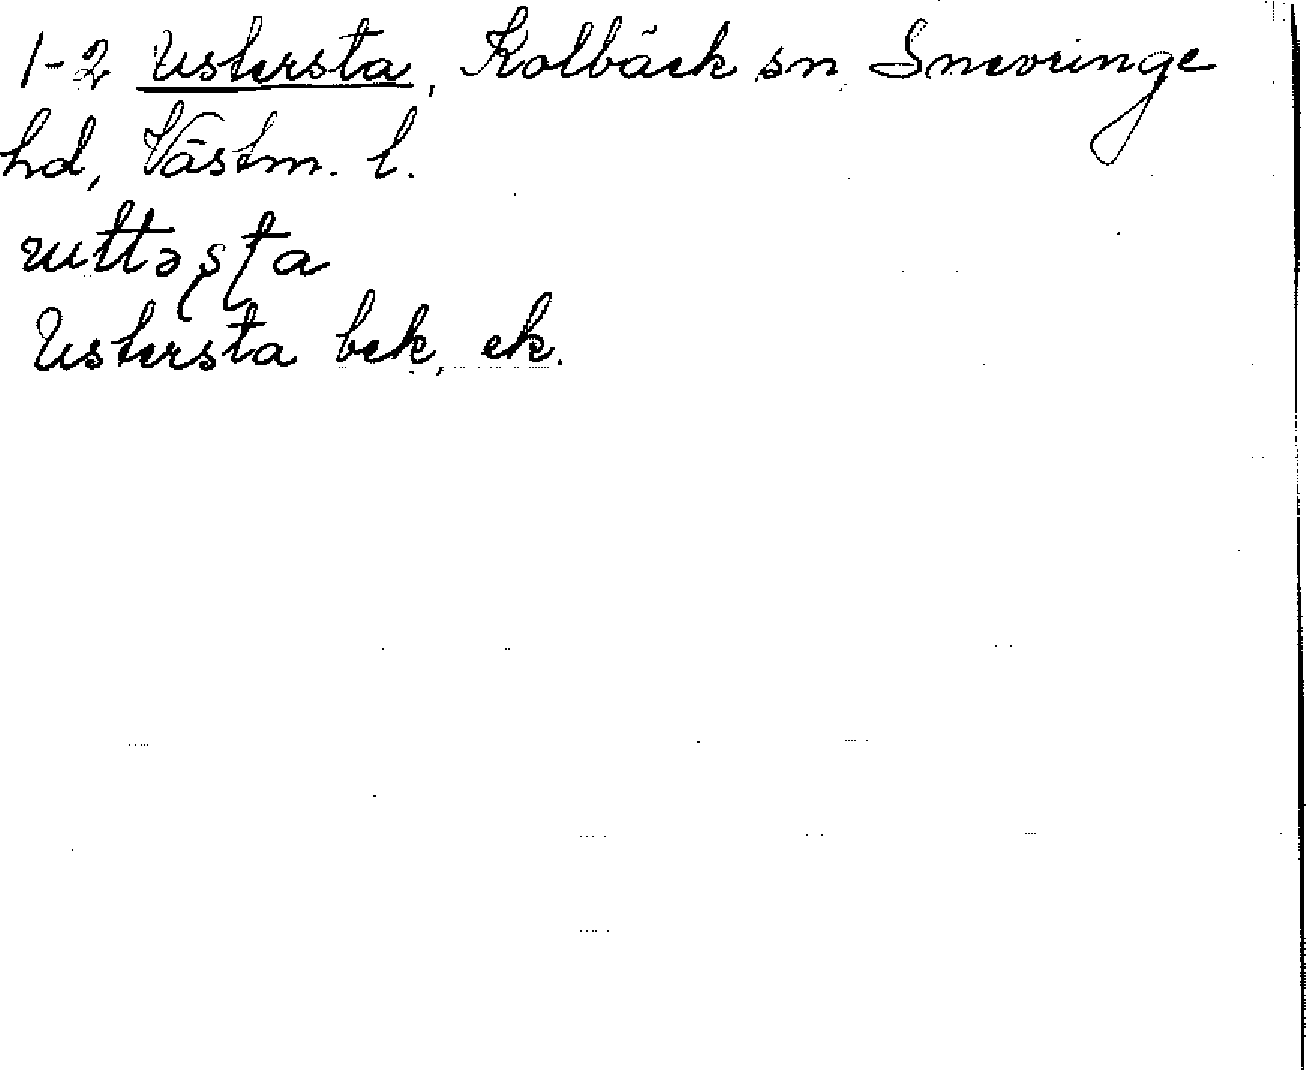 1-2 Ustersta, Kolbäck sn Snevringe
hd, Västm. l.
Ustersta bek, ek.